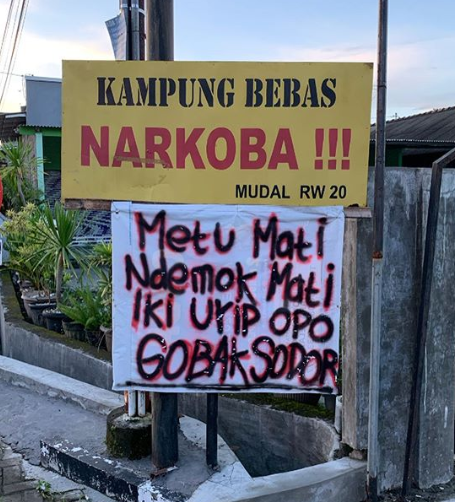 KAMPUNG BEBAS
NARKOBA !!!
MUDAL RW 20
Metu Mati
Ndemok Mati
Iki Urip opo
GOBAK SODOR